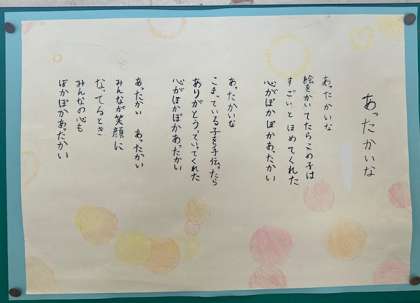 あったかいな
あったかいな
絵をかいてたらこの子は
すごいとほめてくれた
心がぽかぽかあったかい
あったかいな
こまっている子を手伝ったら
ありがとうっていってくれた
心がぽかぽかあったかい
あったかい　あったかい
みんなが笑顔に
なってるとき
みんなの心も
ぽかぽかあったかい